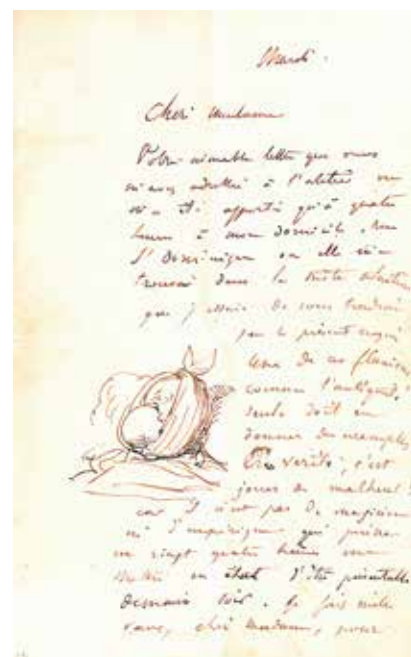 Mardi.
Chère Madame
Votre aimable lettre que vous
m'avez adressée à l'atelier ne
m'a été apporté qu'à quatre
heures à mon domicile, rue
St Dominique où elle m'a
trouvé dans la triste situation
que j'essaie de vous
par le présent croquis
Une de ces fluxions
comme l'antiquité
seule doit en
donner des exemples
En vérité, c'est
jouer de malheur!
car il n'est pas de magicien
ni qui puisse
en vingt quatre heures me
mettre en état d'être présentable
demain soir. Je fais mille
vœux, chère madame, pour